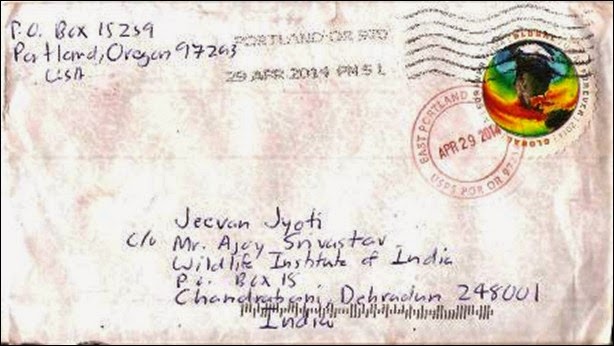 P.O. Box 15239
Portland, Oregon 97293
USA
PORTLAND OR 970
29 APR 2014 PM 5 L
GLOBAL
FOREVER
2014
GLOBAL
EAST PORTLAND
APR 29 2014
USPS POR OR 972
Jeevan Jyoti
c/o Mr. Ajay Srivastav
Wildlife Institute of India
P.O. Box 18
Chandrabani, Dehradun 248001
India